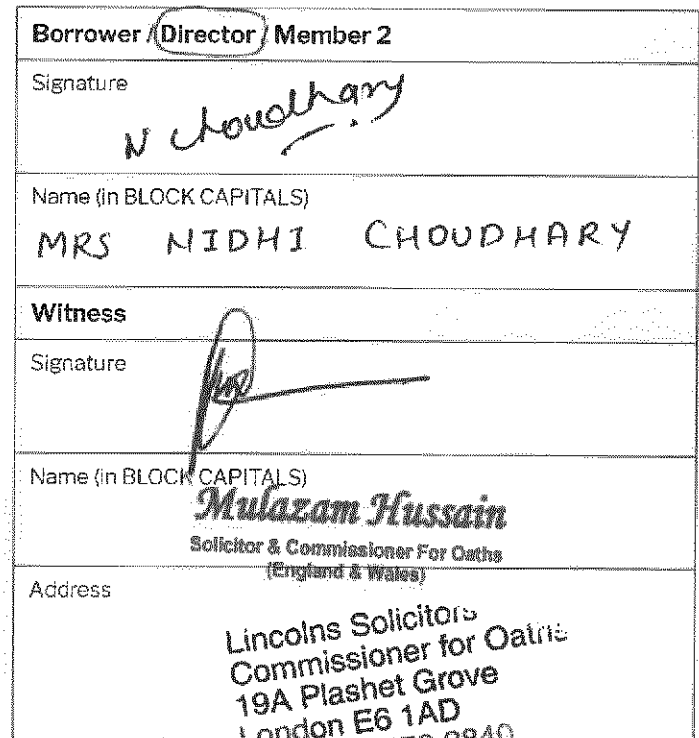 Borrower / Director / Member 2
Signature
N Choudhary
Name (in BLOCK CAPITALS)
MRS NIDHI CHOUDHARY
Witness
Signature
Name (in BLOCK CAPITALS)
Mulazam Hussain
Solicitor & Commissioner For Oaths
(England & Wales)
Address
Lincolns Solicitors
Commissioner for Oaths
19A Plashet Grove
London E6 1AD